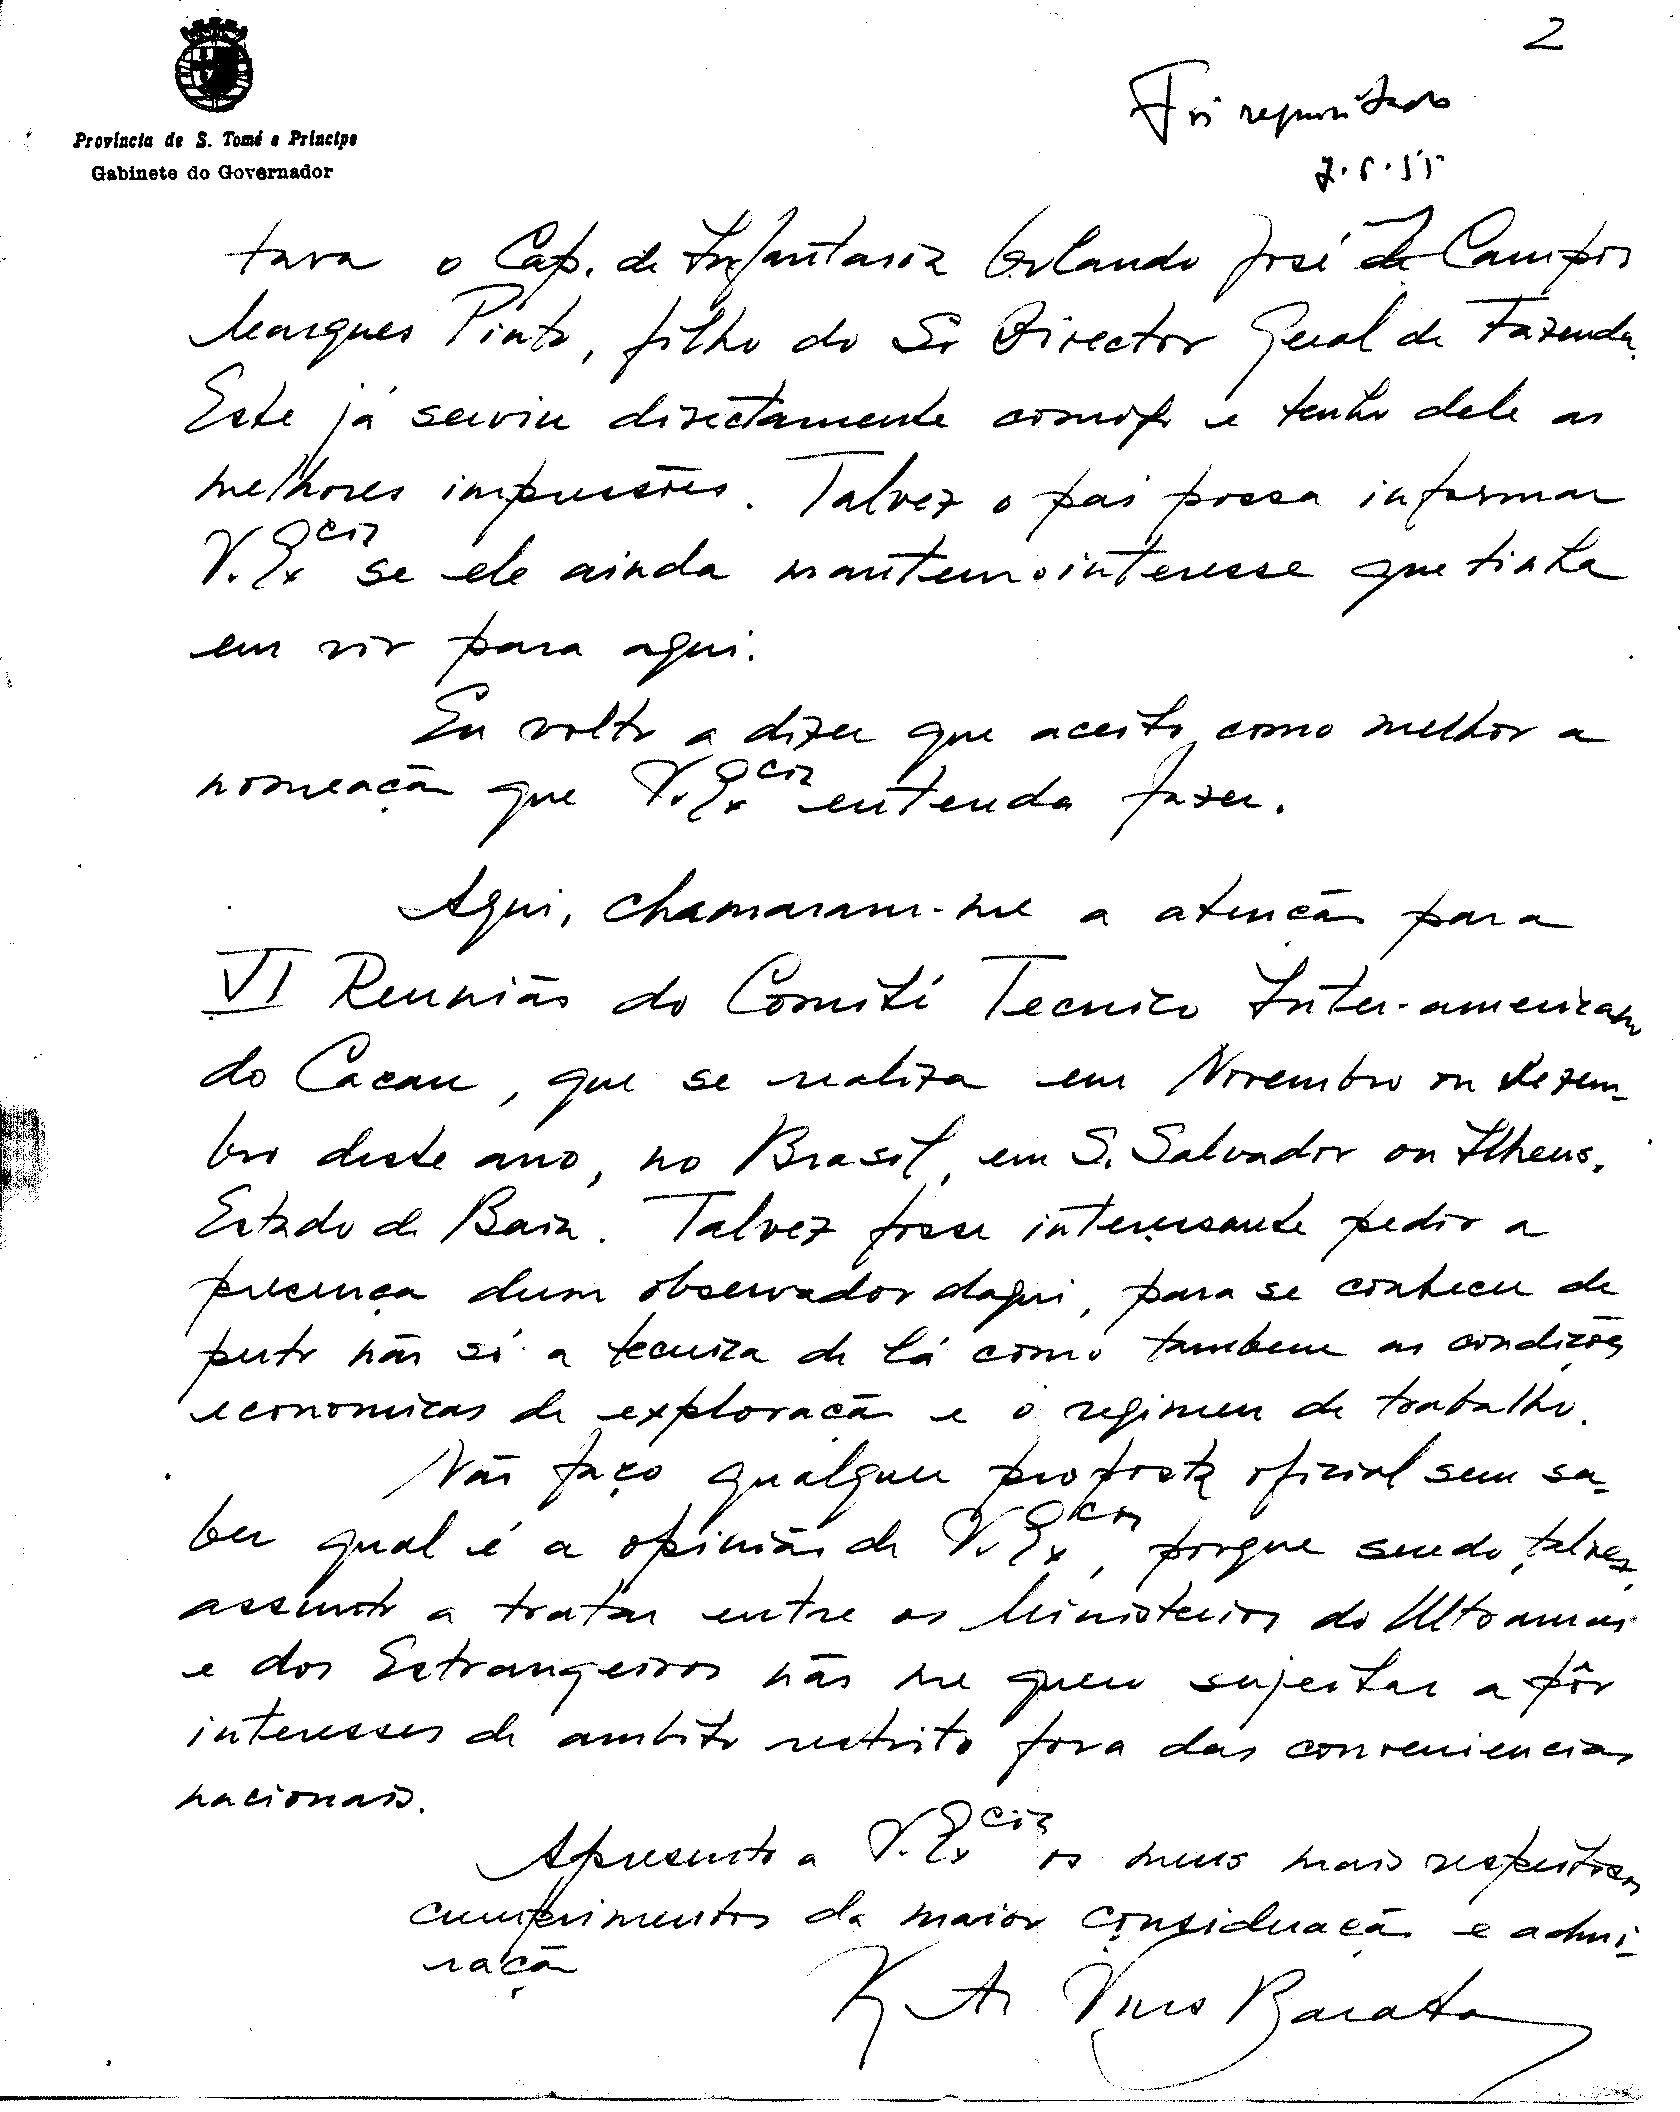 2
Foi requisitado
7.5.55
Província de S. Tomé e Príncipe
Gabinete do Governador
tava o Cap. de Infantaria Orlando José de Campos
Marques Pinto, filho do Sr Director Geral de Fazenda.
Este já serviu directamente comigo e tenho dele as
melhores impressões. Talvez o pai possa informar
V. Excia se ele ainda mantem o interesse que tinha
em vir para aqui.
Eu volto a dizer que aceito como melhor a
nomeação que V. Excia entenda fazer.
Aqui, chamaram-me a atenção para
VI Reunião do Comité Tecnico Inter-americano
do Cacau, que se realiza em Novembro ou Dezem-
bro deste ano, no Brasil, em S. Salvador ou Ilheus,
Estado da Baia. Talvez fosse interessante pedir a
presença dum observador daqui, para se conhecer de
perto não só a tecnica de lá como tambem as condições
economicas de exploração e o regimen de trabalho.
Não faço qualquer proposta oficial sem sa-
ber qual é a opinião de V. Excia, porque sendo, talvez,
assunto a tratar entre os Ministerios do Ultramar
e dos Estrangeiros não me quero sujeitar a pôr
interesses de ambito restrito fora das conveniencias
nacionais.
Apresento a V. Excia os meus mais respeitosos
cumprimentos da maior consideração e admi-
ração
Vaz Barata